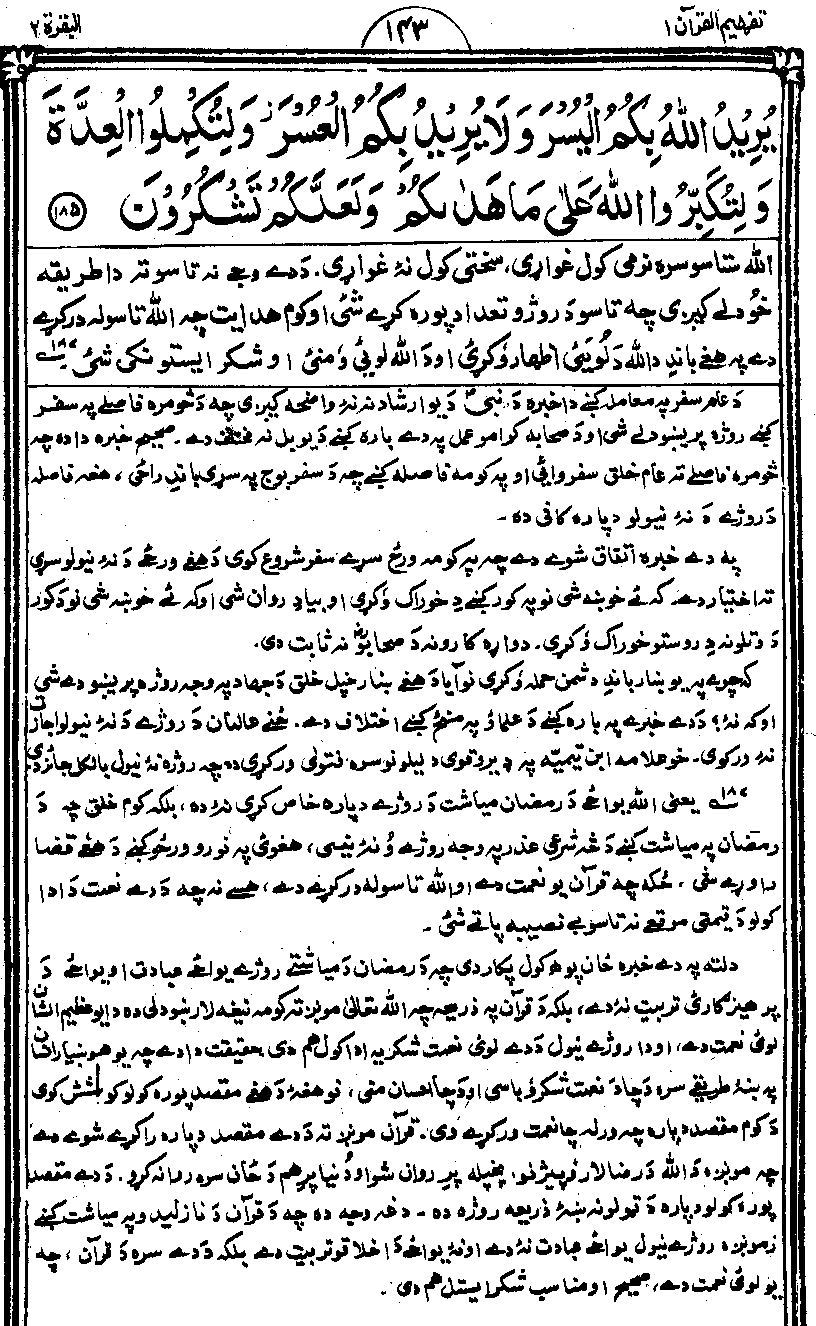 تفهيم القرآن ۱
۱۴۳
البقرة ۲
يُرِيْدُ اللهُ بِكُمُ الْيُسْرَ وَلَا يُرِيْدُ بِكُمُ الْعُسْرَ وَلِتُكْمِلُوا الْعِدَّةَ
وَلِتُكَبِّرُوا اللهَ عَلٰى مَا هَدٰىكُمْ وَلَعَلَّكُمْ تَشْكُرُوْنَ ۱۸۵
الله ستاسو سره نرمي کول غواړي، سختي کول نۀ غواړي. دَدے وجے نه تاسو ته دا طريقه
خودلے کيږي چه تاسو دَ روژو تعداد پوره کړے شئ او کوم هدايت چه الله تاسوله درکړے
دے په هغے باندِ دالله دَلُويئ اظهار وُکړئ اودَ الله لوئي وُمنئ او شکر ايستونکي شئ ۱۸۷
دَ عام سفر په معامله کښے دا خبره دَ نبیؐ دَ يو ارشاد نه نۀ واضحه کيږي چه دَ څومره فاصلے په سفر
کښے روژه پريښودلے شي او دَ صحابه کرامو عمل په دے باره کښے دَ يو بل نه مختلف دے. صحيح خبره دا ده چه
څومره فاصلے ته عام خلق سفر وائي او په کومه فاصله کښے چه دَ سفر بوج په سړي باندِ راځي، هغه فاصله
دَ روژے دَ نۀ نيولو دپاره کافي ده -
په دے خبره اتفاق شوے دے چه په کومه ورځ سړے سفر شروع کوي دَ هغے ورځے دَ نۀ نيولو سړي
ته اختيار دے. که ئے خوښه شي نو په کور کښے دِ خوراک وُکړي او بيا دِ روان شي او که ئے خوښه شي نو دَ کور
دَ وتلو نه دِ روستو خوراک وُکړي. دواړه کارونه دَ صحابوؓ نه ثابت دي.
که چرے په يو ښار باندِ دشمن حمله وُکړي نو آيا دَ هغے ښار خپل خلق دَ جهاد په وجه روژه پريښودے شي
اوکه نۀ؟ دَدے خبرے په باره کښے دَ علماؤ په منځ کښے اختلاف دے. ځنے عالمان دَ روژے دَ نۀ نيولو اجازت
نۀ ورکوي. خو علامه ابن تيميهؒ په ډيرو قوي دليلونو سره فتوٰی ورکړې ده چه روژه نۀ نيول بالکل جائز دي
۱۸۷ يعني الله يواځے دَ رمضان مياشت دَ روژے دپاره خاص کړې نۀ ده، بلکه کوم خلق چه دَ
رمضان په مياشت کښے دَ څه شرعي عذر په وجه روژے وُ نۀ نيسي، هغوئ په نورو ورځو کښے دَ هغے قضا
راوړے شي، ځکه چه قرآن يو نعمت دے او الله تاسوله درکړے دے، هسے نه چه دَ دے نعمت دَ ادا
کولو دَ قيمتي موقعے نه تاسو بے نصيبه پاتے شئ.
دلته په دے خبره ځان پوهه کول پکار دي چه دَ رمضان دَ مياشتے روژے يواځے عبادت او يواځے دَ
پرهيزګارئ تربيت نۀ دے، بلکه دَ قرآن په ذريعه چه الله تعالیٰ مونږ ته کومه نيغه لار ښودلې ده دا يو عظيم الشان
لوئي نعمت دے، او دا روژے نيول دَ دے لوئي نعمت شکريه ادا کول هم دي. حقيقت دا دے چه يو هوښيار انسان
په ښۀ طريقے سره دَ چا دَ نعمت شکر وُباسي او دَ چا احسان مني، نو هغه دَ هغے مقصد پوره کولو کوشش کوي
دَ کوم مقصد دپاره چه ورله چا نعمت ورکړے وي. قرآن مونږ ته دَ دے مقصد دپاره راکړے شوے دے
چه مونږه دَ الله دَ رضا لار وُپيژنو. په خپله پرِ روان شو او دُنيا پرِ هم دَ ځان سره روانه کړو. دَ دے مقصد
پوره کولو دپاره دَ ټولو نه ښۀ ذريعه روژه ده - دغه وجه ده چه دَ قرآن دَ نازليدو په مياشت کښے
زمونږه روژے نيول يواځے عبادت نۀ دے او نۀ يواځے دَ اخلاقو تربيت دے بلکه دَ دے سره دَ قرآن، چه
يو لوئي نعمت دے، صحيح او مناسب شکر ايستل هم دي.